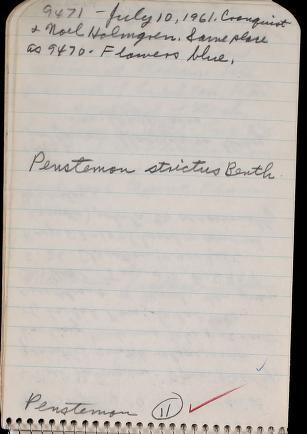 9471 - July 10, 1961. Cronquist
& Noel Holmgren. Same place
as 9470. Flowers blue.
Penstemon strictus Benth.
Penstemon 11